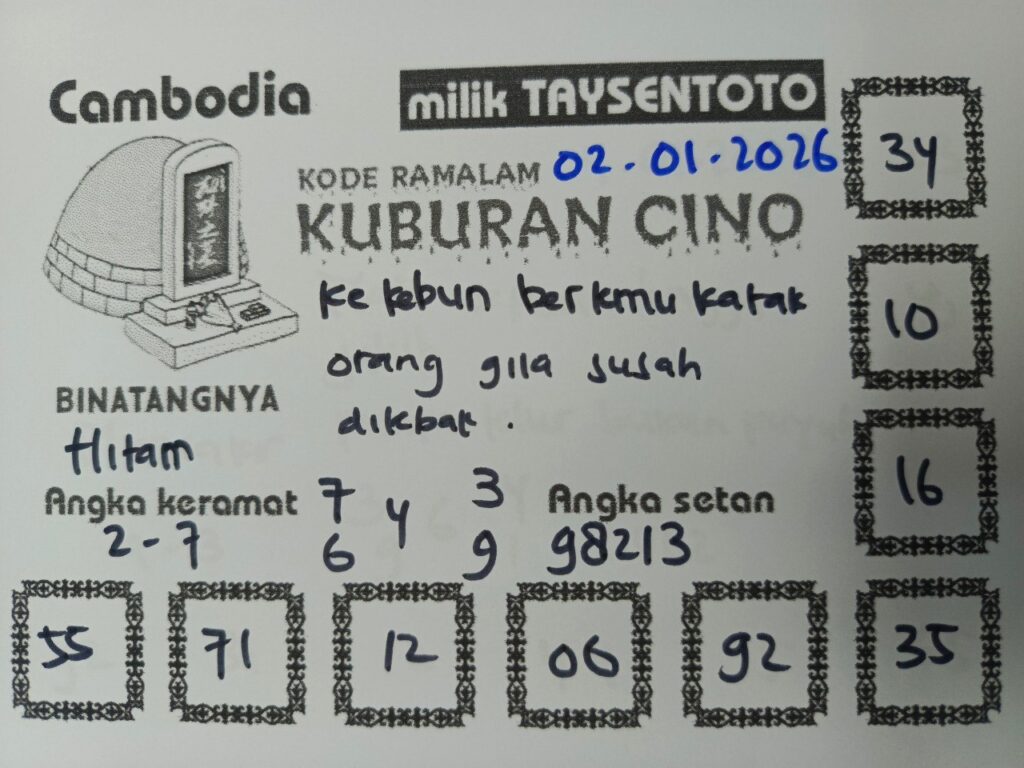 Cambodia
milik TAYSENTOTO
KODE RAMALAM 02.01.2026
KUBURAN CINO
ke kebun berkmu katak
orang gila susah
dikbak.
BINATANGNYA
Hitam
Angka keramat
2-7
7 3
4
6 9
Angka setan
98213
34
10
16
55 71 12 06 92 35